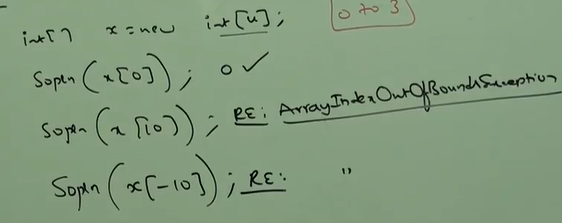 int[] x = new int[4]; 0 to 3
Sopln(x[0]); 0 ✓
Sopln(x[10]); RE: ArrayIndexOutOfBoundsException
Sopln(x[-10]); RE: "